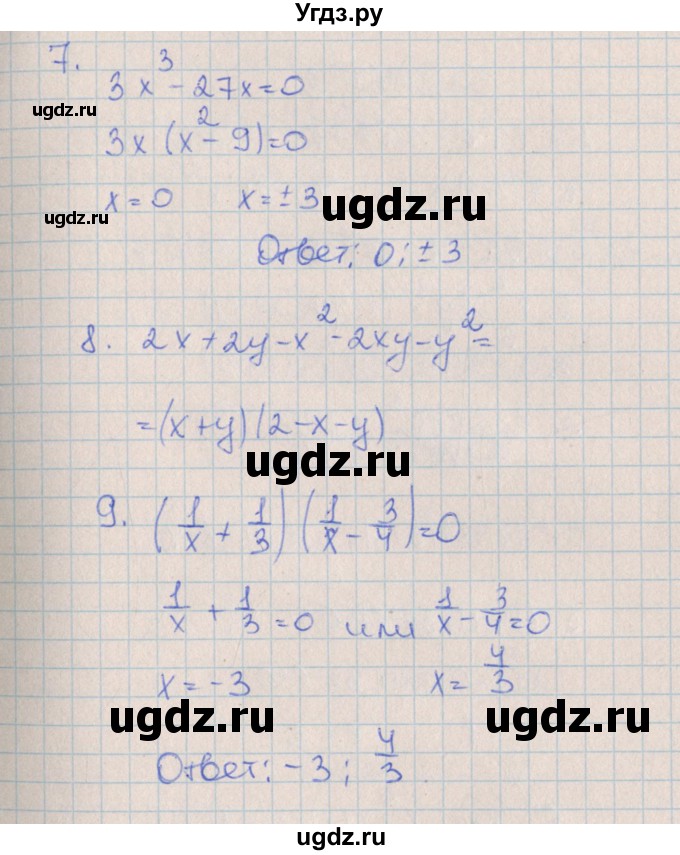 Угдз.ру
7. 3x³ - 27x = 0
ugdz.ru
3x (x² - 9) = 0
x = 0 x = ± 3
ugdz.ru
ugdz.ru
Ответ: 0; ± 3
8. 2x + 2y - x² - 2xy - y² =
= (x + y) (2 - x - y)
ugdz.ru
9. (1/x + 1/3) (1/x - 3/4) = 0
1/x + 1/3 = 0 или 1/x - 3/4 = 0
x = - 3 x = 4/3
ugdz.ru ugdz.ru
Ответ: - 3; 4/3.
ugdz.ru